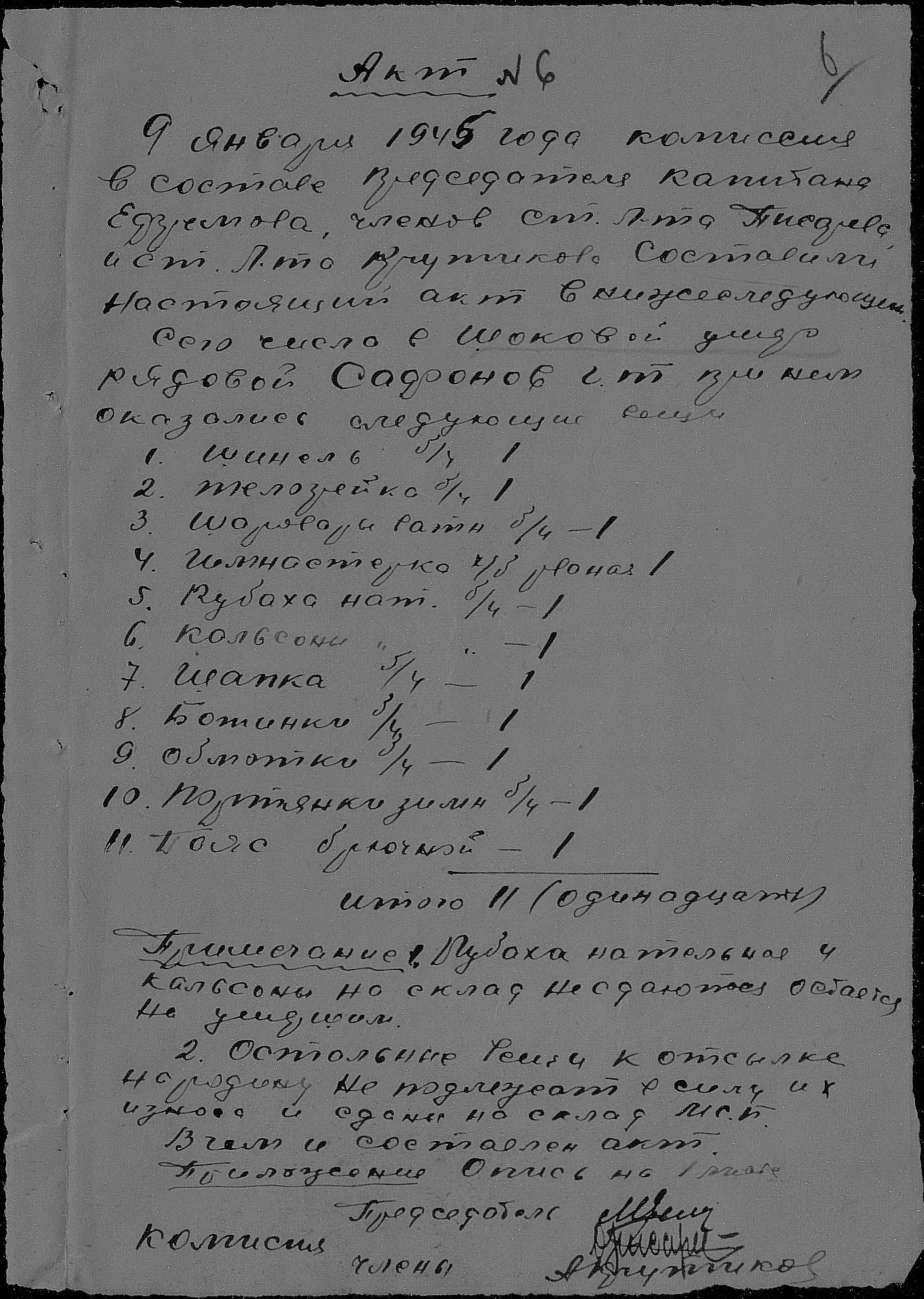 6
Акт N 6
9 января 1945 года комиссия
в составе председателя капитана
членов ст. Л-та Писарева,
и ст. Л-та Крутикова Составили
настоящий акт в нижеследующем.
Сего числа в шоковой умер
рядовой Сафонов г.т при нем
оказались следующие вещи
1. Шинель б/у 1
2. Телогрейка б/у 1
3. Шаровары ватн б/у – 1
4. Гимнастерка х/б рваная 1
5. Рубаха нат. б/у – 1
6. Кальсоны " " – 1
7. Шапка б/у – 1
8. Ботинки б/у – 1
9. Обмотки б/у – 1
10. Портянки зимн б/у – 1
11. Пояс брючной – 1
итого 11 (одинадцать)
Примечание 1. Рубаха нательная и
кальсоны на склад не сдаются остается
на умершем.
2. Остальные вещи к отсылке
на родину не подлежат в силу их
износа и сданы на склад
В чем и составлен акт.
Приложение Опись на 1 листе
Председатель
комиссия
члены
Крутиков